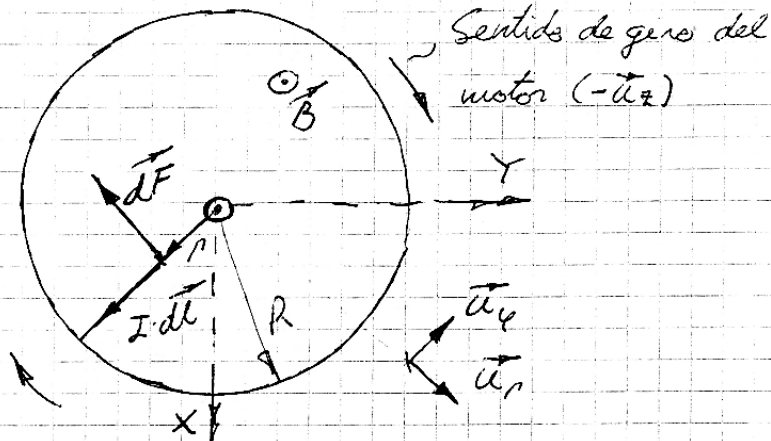 Sentido de giro del
motor (-u⃗z)
B⃗
dF⃗
Y
r
I·dl⃗
R
u⃗φ
u⃗r
X